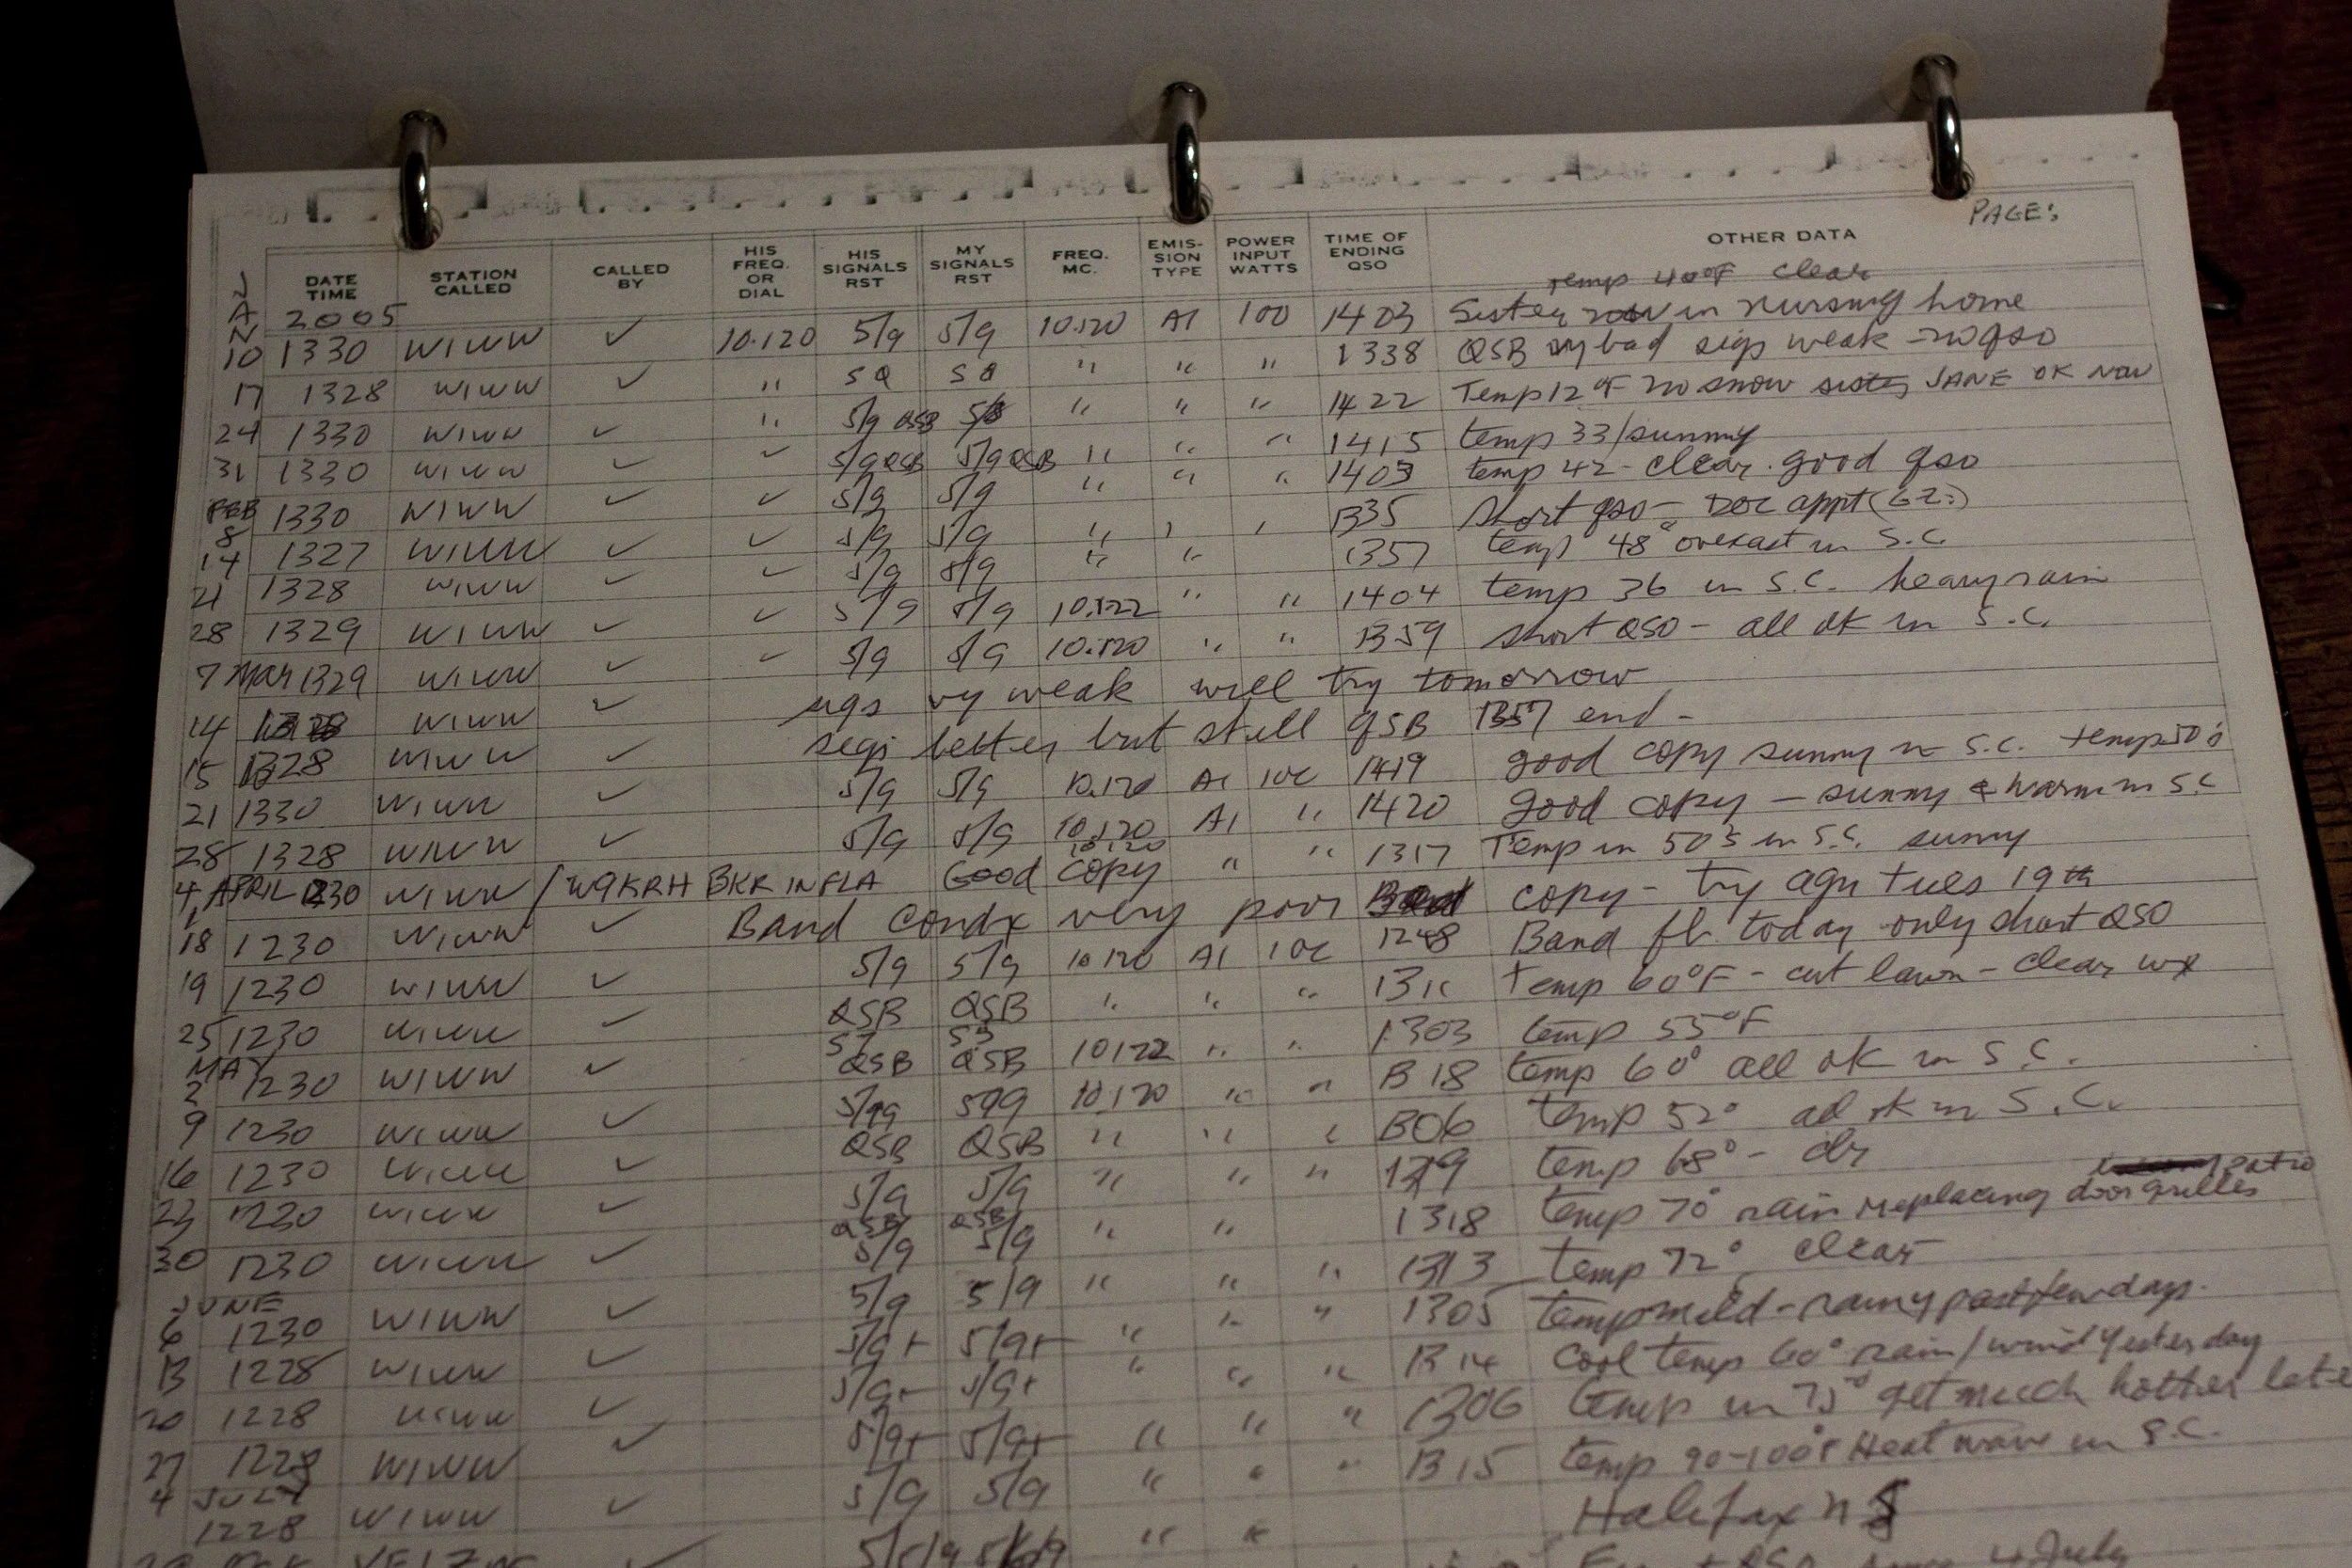 PAGE:
DATE TIME STATION CALLED CALLED BY HIS FREQ. OR DIAL HIS SIGNALS RST MY SIGNALS RST FREQ. MC. EMIS-SION TYPE POWER INPUT WATTS TIME OF ENDING QSO OTHER DATA
JAN 2005 temp 40°F clear
10 1330 W1WW ✓ 10.120 5/9 5/9 10.120 A1 100 1403 Sister in nursing home
17 1328 W1WW ✓ " " " " 1338 QSB vy bad sigs weak - no qso
24 1330 W1WW ✓ " 5/9 QSB " " " 1422 Temp 12°F no snow sister JANE OK now
31 1330 W1WW ✓ ✓ 5/9 QSB 5/9 QSB " " " 1415 temp 33/sunny
FEB 8 1330 W1WW ✓ ✓ 5/9 5/9 " " " 1403 temp 42 - clear. good qso
14 1327 W1WW ✓ ✓ 5/9 5/9 " 1335 short qso - Doc appt
21 1328 W1WW ✓ ✓ 5/9 5/9 " " 1357 temp 48° overcast in S.C.
28 1329 W1WW ✓ ✓ 5/9 5/9 10.122 " " 1404 temp 36 in S.C. heavy rain
7 Mar 1329 W1WW ✓ ✓ 5/9 5/9 10.120 " " 1359 short QSO - all ok in S.C.
14 1328 W1WW ✓ sigs vy weak will try tomorrow
15 1328 W1WW ✓ sigs better but still QSB 1357 end -
21 1330 W1WW ✓ 5/9 5/9 10.120 A1 100 1419 good copy sunny in S.C. temp 50's
28 1328 W1WW ✓ 5/9 5/9 10.120 A1 " 1420 good copy - sunny & warm in S.C
4 APRIL 1230 W1WW / W9KRH BKR IN FLA Good copy 10.120 " " 1317 Temp in 50's in S.C. sunny
18 1230 W1WW ✓ Band condx very poor copy - try agn tues 19th
19 1230 W1WW ✓ 5/9 5/9 10 120 A1 100 1248 Band fb today only short QSO
25 1230 W1WW ✓ QSB QSB " " " Temp 60°F - cut lawn - clear wx
MAY 2 1230 W1WW ✓ QSB QSB 10122 " " 1303 temp 55°F
9 1230 W1WW ✓ 599 10.120 " " 1318 temp 60° all ok in S.C.
16 1230 W1WW ✓ QSB QSB " " " 1306 temp 52° all ok in S.C.
23 1230 W1WW ✓ 5/9 5/9 " " " temp 68° - clr
30 1230 W1WW ✓ QSB 5/9 QSB 5/9 " " 1318 temp 70° rain replacing patio door grilles
JUNE 6 1230 W1WW ✓ 5/9 5/9 " " " 1313 temp 72° clear
13 1228 W1WW ✓ 5/9+ 5/9+ " " " 1305 temp mild - rainy past few days.
20 1228 W1WW ✓ 5/9+ 5/9+ " " " 1314 Cool temp 60° rain/wind yesterday
27 1228 W1WW ✓ 5/9+ 5/9+ " " " 1306 temp in 75° get much hotter late
4 JULY 1228 W1WW ✓ 5/9 5/9 " " " 1315 temp 90-100°F Heat wave in S.C.
Halifax
July